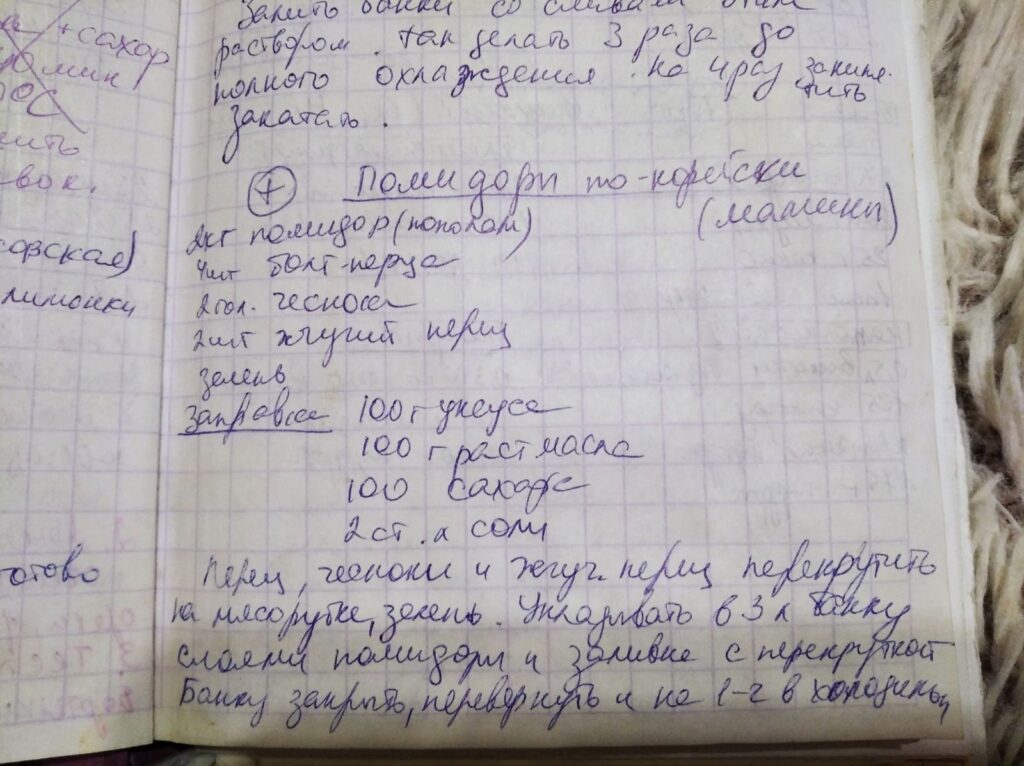 + сахор
мин
вок.
совская)
лимонки
готово
Залить банки со сливами этим
раствором. так делать 3 раза до
полного охлаждения. на 4 раз закипя-
тить
закатать.
+ Помидоры по-корейски
(машины)
2кг помидор (пополам)
4шт болг-перца
2гол. чеснока
2шт жгучий перец
зелень
заправка 100 г уксуса
100 г раст масла
100 сахара
2 ст. л соли
Перец, чесноки и жгуч. перец перекрутить
на мясорубке, зелень. Укладывать в 3 л банку
слоями помидоры и заливка с перекруткой
Банку закрыть, перевернуть и на 1-2 в холодильн